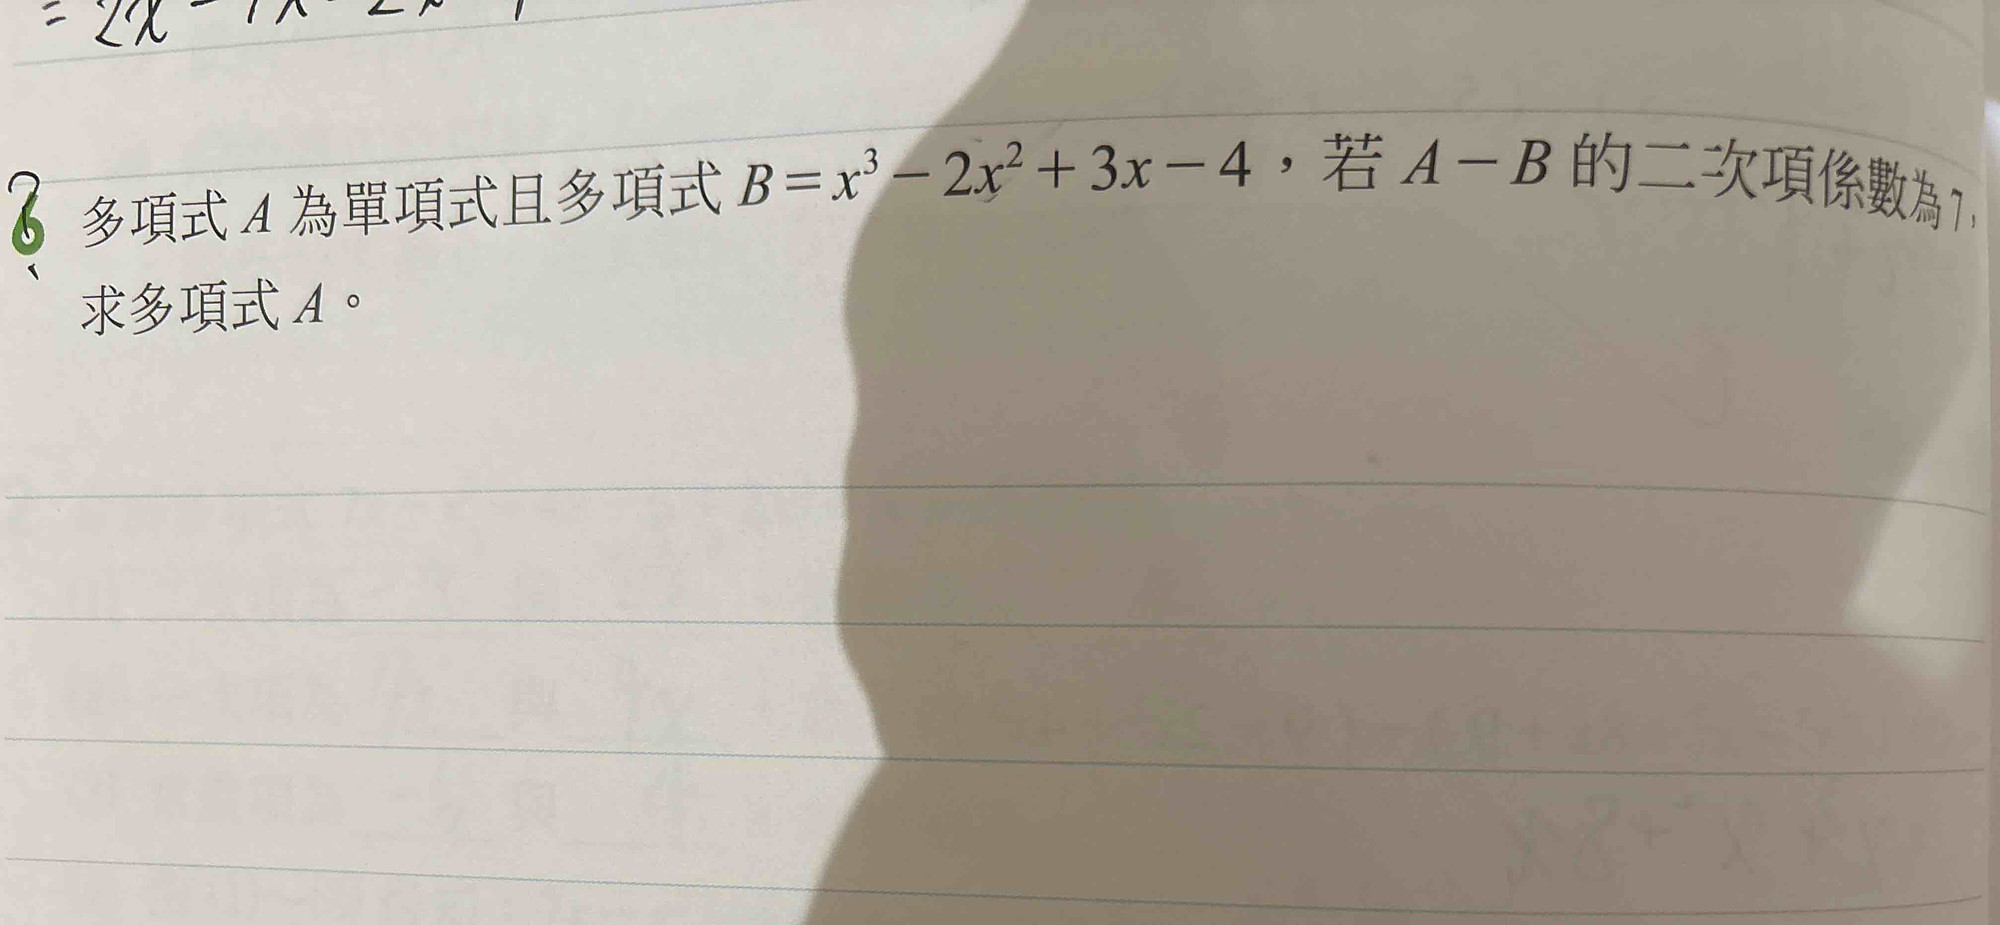 6 多項式 A 為單項式且多項式 B=x³-2x²+3x-4，若 A-B 的二次項係數為7，
求多項式 A。